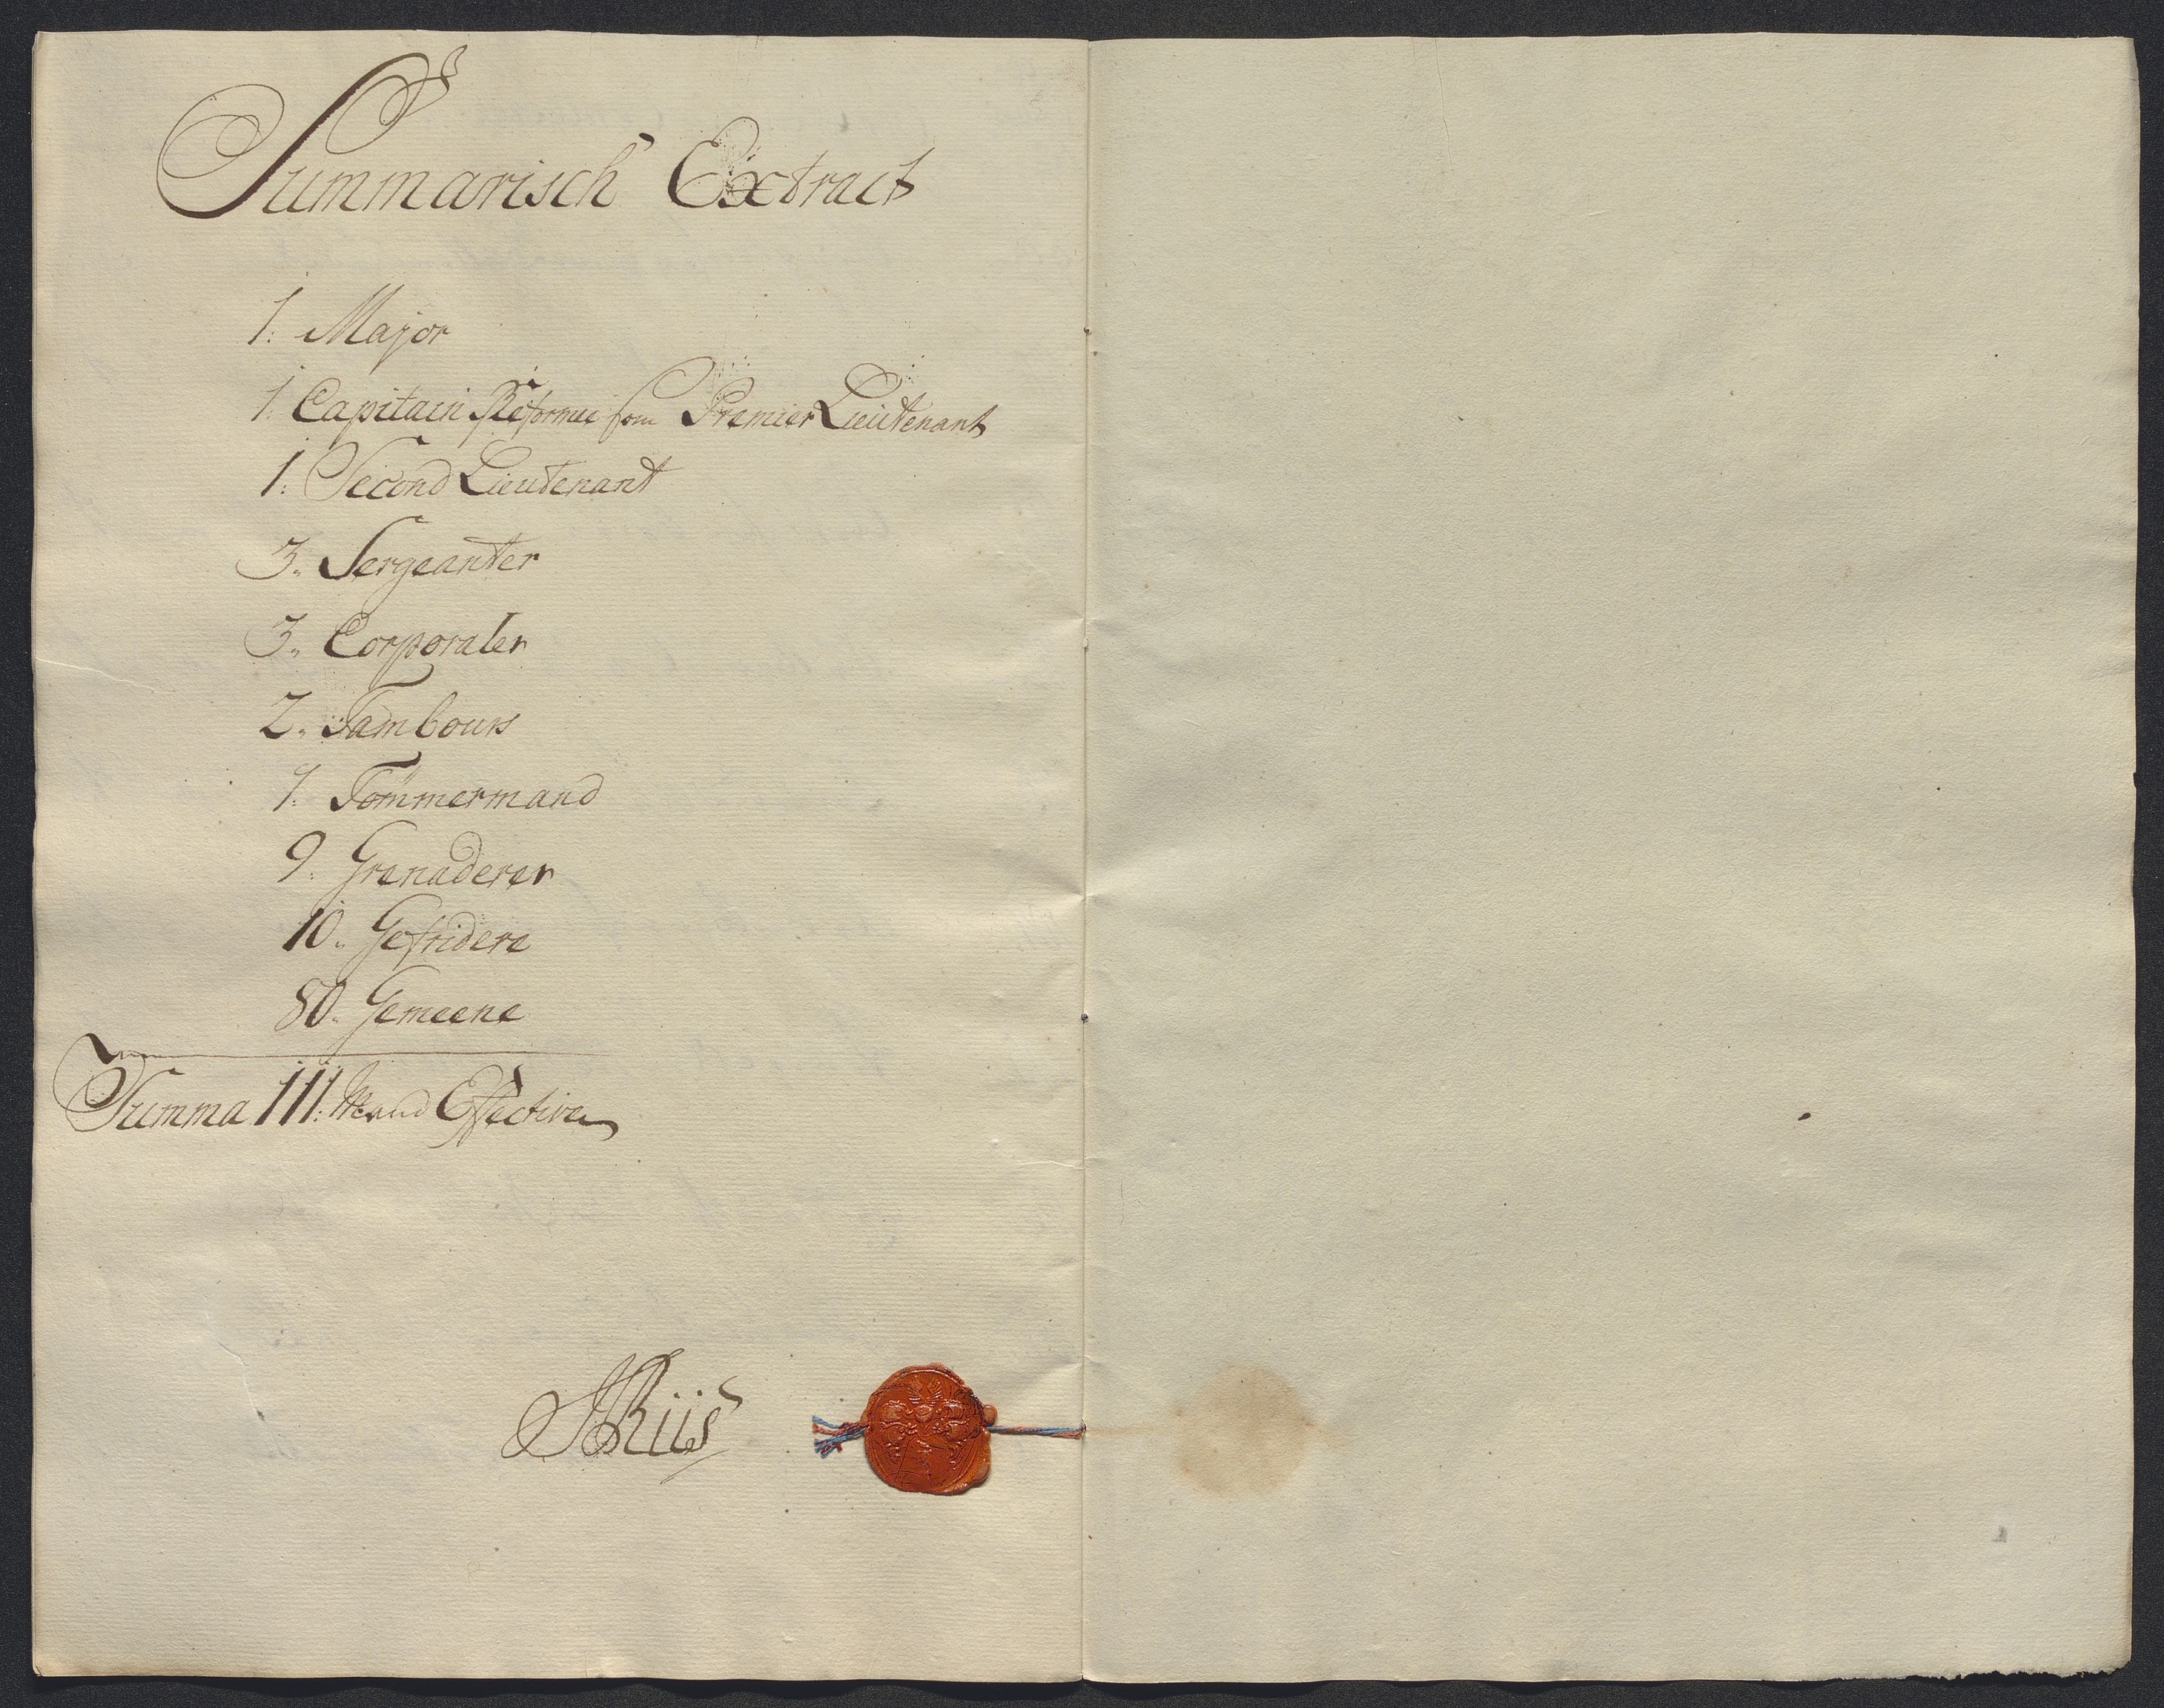 Summarisch Extract
1: Major
1: Capitain Reformee som Premier Lieutenant
1: Second Lieutenant
3. Sergeanter
3. Corporaler
2. Tambours
1: Tömmermand
9: Grenaderer
10. Gefridere
80. Gemeene
Summa 111: Mand Effective
JRiis